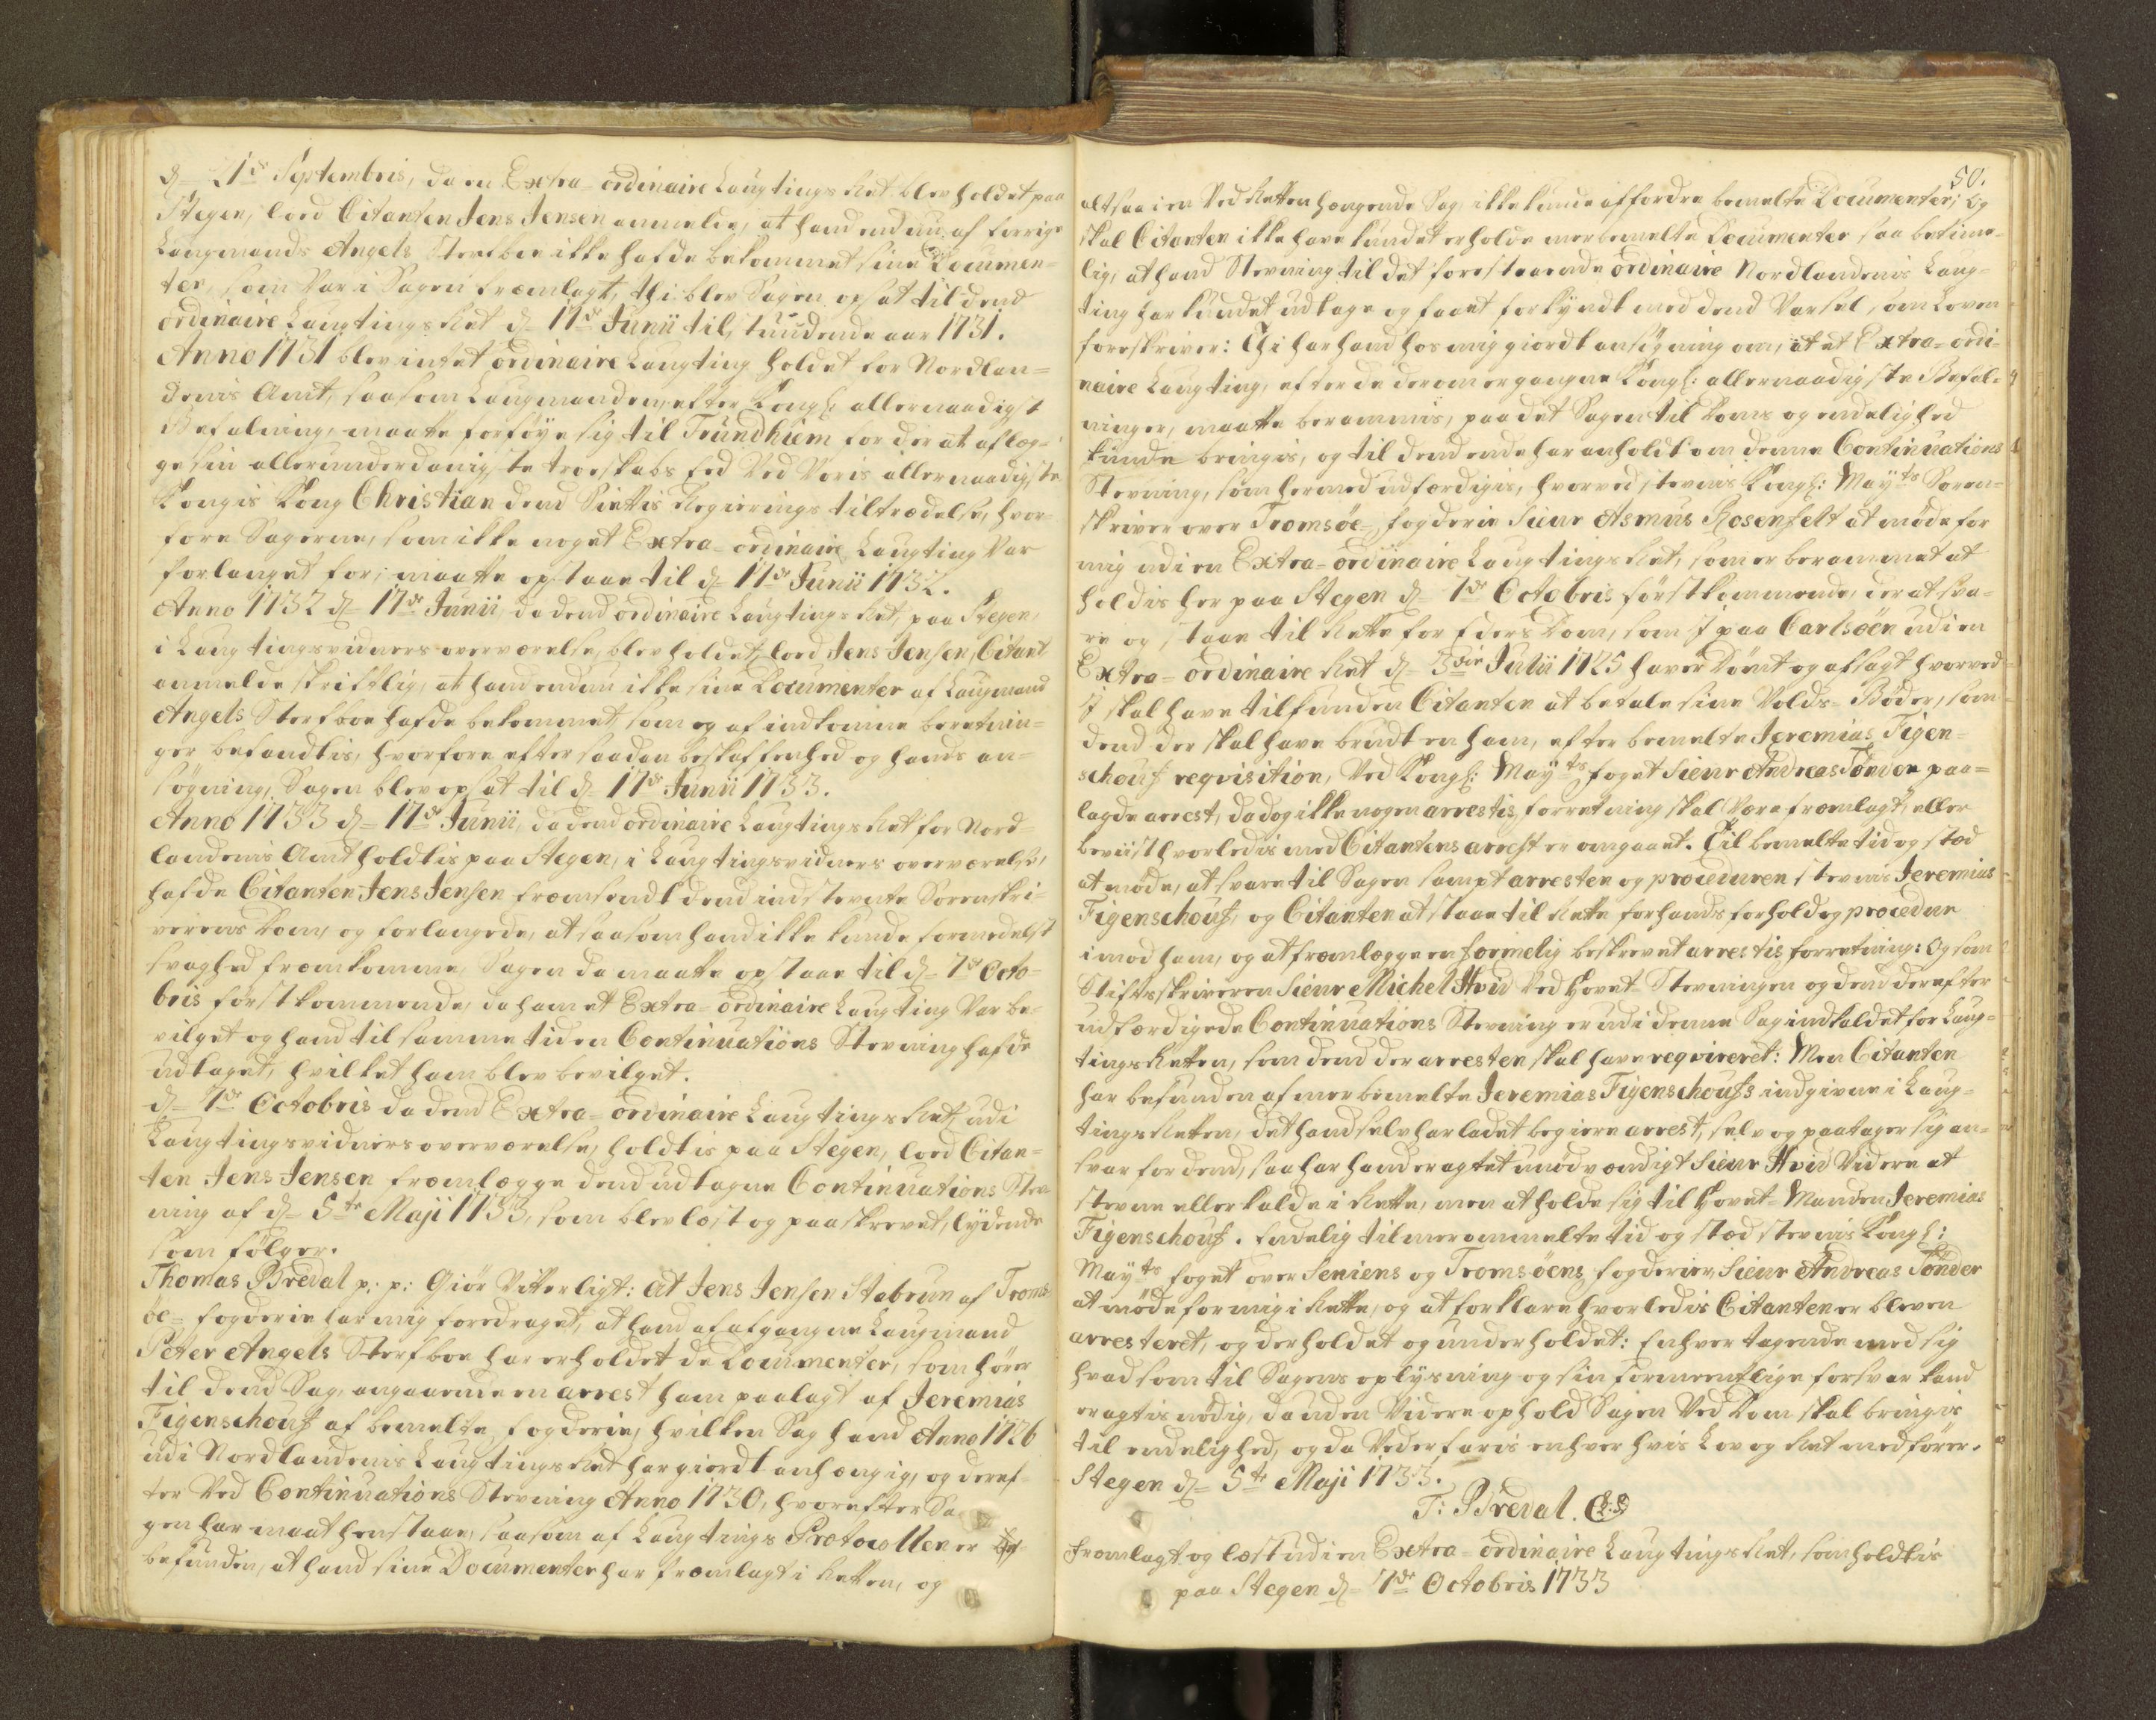 d= 21de Septembris, da en Extra=ordinaire Laugtings Ret blev holdet paa
Stegen, loed Citanten Jens Jensen anmelde, at hand endnu af forrige
Laugmands Angels Sterfboe ikke hafde bekommet sine Documen=
ter, som var i Sagen fremlagt, thi blev Sagen opsat til dend
ordinaire Laugtings Ret d= 17de Junii til tuudende aar 1731.
Anno 1731 blev intet ordinaire Laugting holdet for Nordlan=
denis Amt, saasom Laugmanden, efter Kongl: allernaadigst
Befalning, maatte forføye sig til Trundhiem for der at aflæg=
ge sin allerunderdanigste troeskabs Eed ved Voris allernaadigste
Kongis Kong Christian dend Siettis Regierings tiltrædelse, hvor=
fore Sagerne, som ikke noget Extra=ordinaire Laugting var
forlanget for, maatte opstaae til d= 17de Junii 1732.
Anno 1732 d= 17de Junii, da dend ordinaire Laugtings Ret, paa Stegen,
i Laugtingsvidners overværelse, blev holdet, loed Jens Jensen, Citant
anmelde skriftlig, at hand endnu ikke sine Documenter af Laugmand
Angels Sterfboe hafde bekommet, som og af indkomne beretnin=
ger befandtis, hvorfore efter saadan beskaffenhed og hands an=
søgning, Sagen blev opsat til d= 17de Junii 1733.
Anno 1733 d= 17de Junii, da dend ordinaire Laugtings Ret for Nord=
landenis Amt holdtis paa Stegen, i Laugtingsvidners overværelse,
hafde Citanten Jens Jensen fremsendt dend indstevnte Sorenskri=
verens Dom, og forlangede, at saasom hand ikke kunde formedelst
svaghed fremkomme, Sagen da maatte opstaae til d= 7de Octo=
bris førstkommende, da ham et Extra=ordinaire Laugting var be=
vilget og hand til samme tid en Continuations Stevning hafde
udtaget, hvilket ham blev bevilget.
d= 7de Octobris da dend Extra=ordinaire Laugtings Ret, udi
Laugtingsvidners overværelse, holdtis paa Stegen, loed Citan=
ten Jens Jensen fremlægge dend udtagne Continuations Stev=
ning af d= 5te Maji 1733, som blev læst og paaskrevet, lydende
som følger.
Thomas Bredal p: p: Giør vitterligt: At Jens Jensen Stabrun af Troms=
öe=fogderie har mig foredraget, at hand af afgangne Laugmand
Peter Angels Sterfboe har erholdet de Documenter, som hører
til dend Sag, angaaende en arrest ham paalagt af Jeremias
Figenschouf af bemelte fogderie, hvilken Sag hand Anno 1726
udi Nordlandenis Laugtings Ret har giordt anhængig, og deref=
ter ved Continuations Stevning Anno 1730, hvorefter Sa=
gen har maat henstaae, saasom af Laugtings Protocollen er
befunden, at hand sine Documenter har fremlagt i Retten, og
50.
altsaa i en ved Retten hængende Sag ikke kunde affordre bemelte Documenter; og
skal Citanten ikke have kundet erholde merbemelte Documenter saa betime=
lig, at hand Stevning til det forestaaende ordinaire Nordlandenis Laug=
ting har kundet udtage og faaet forkyndt med dend Varsel, som Loven
foreskriver: Thi har hand hos mig giordt ansøgning om, at et Extra=ordi=
naire Laugting, efter de derom ergangne Kongl: allernaadigste Befal=
ninger, maatte berammis, paa det Sagen til Doms og endelighed
kunde bringis, og til dend ende har anholdt om denne Continuations
Stevning, som hermed udfærdigis, hvorved stevnis Kongl: Mayts Soren=
skriver over Tromsöe=fogderie Sieur Asmus Rosenfelt at møde for
mig udi en Extra=ordinaire Laugtings Ret, som er berammet at
holdis her paa Stegen d= 7de Octobris førstkommende, der at sva=
re og staae til Rette for Eders Dom, som I paa Carlsöen udi en
Extra=ordinaire Ret d= 3die Julii 1725 haver dømt og afsagt hvorved
I skal have tilfunden Citanten at betale sine Volds=Bøder, som
dend der skal have brudt en ham, efter bemelte Jeremias Figen=
schoufs reqvisition, ved Kongl: Mayts foget Sieur Andreas Tönder paa=
lagde arrest, da dog ikke nogen arrestis forretning skal være fremlagt, eller
beviist hvorledis med Citantens arrest er omgaaet. Til bemelte tid og stæd
at møde, at svare til Sagen sampt arresten og proceduren stevnis Jeremias
Figenschouf, og Citanten at staae til Rette for hands forhold og procedure
imod ham, og at fremlægge en formelig beskrevet arrestis forretning: Og som
Stiftsskriveren Sieur Michel Hvid ved Hovet=Stevningen og dend derefter
udfærdigede Continuations Stevning er udi denne Sag indkaldet for Laug=
tings Retten, som dend der arresten skal have reqvireret: Men Citanten
har befunden af merbemelte Jeremias Figenschoufs indgivne i Laug=
tings Retten, det hand selv har ladet begiere arrest, selv og paatager sig an=
svar for dend, saa har hand eragtet unødvendigt Sieur Hvid videre at
stevne eller kalde i Rette, men at holde sig til Hovet=Manden Jeremias
Figenschouf. Endelig til meranmelte tid og stæd stevnis Kongl:
Mayts foget over Seniens og Tromsöens fogderier, Sieur Andreas Tönder
at møde for mig i Rette, og at forklare hvorledis Citanten er bleven
arresteret, og derholdet og underholdet: Enhver tagende med sig
hvad som til Sagens oplysning og sin formeentlige forsvar kand
eragtis nødig, da uden videre ophold Sagen ved Dom skal bringis
til endelighed, og da vederfaris enhver hvis Lov og Ret medfører.
Stegen d= 5te Maji 1733.
T: Bredal. (L:S)
Fremlagt og læst udi en Extra=ordinaire Laugtings Ret, som holdtis
paa Stegen d= 7de Octobris 1733